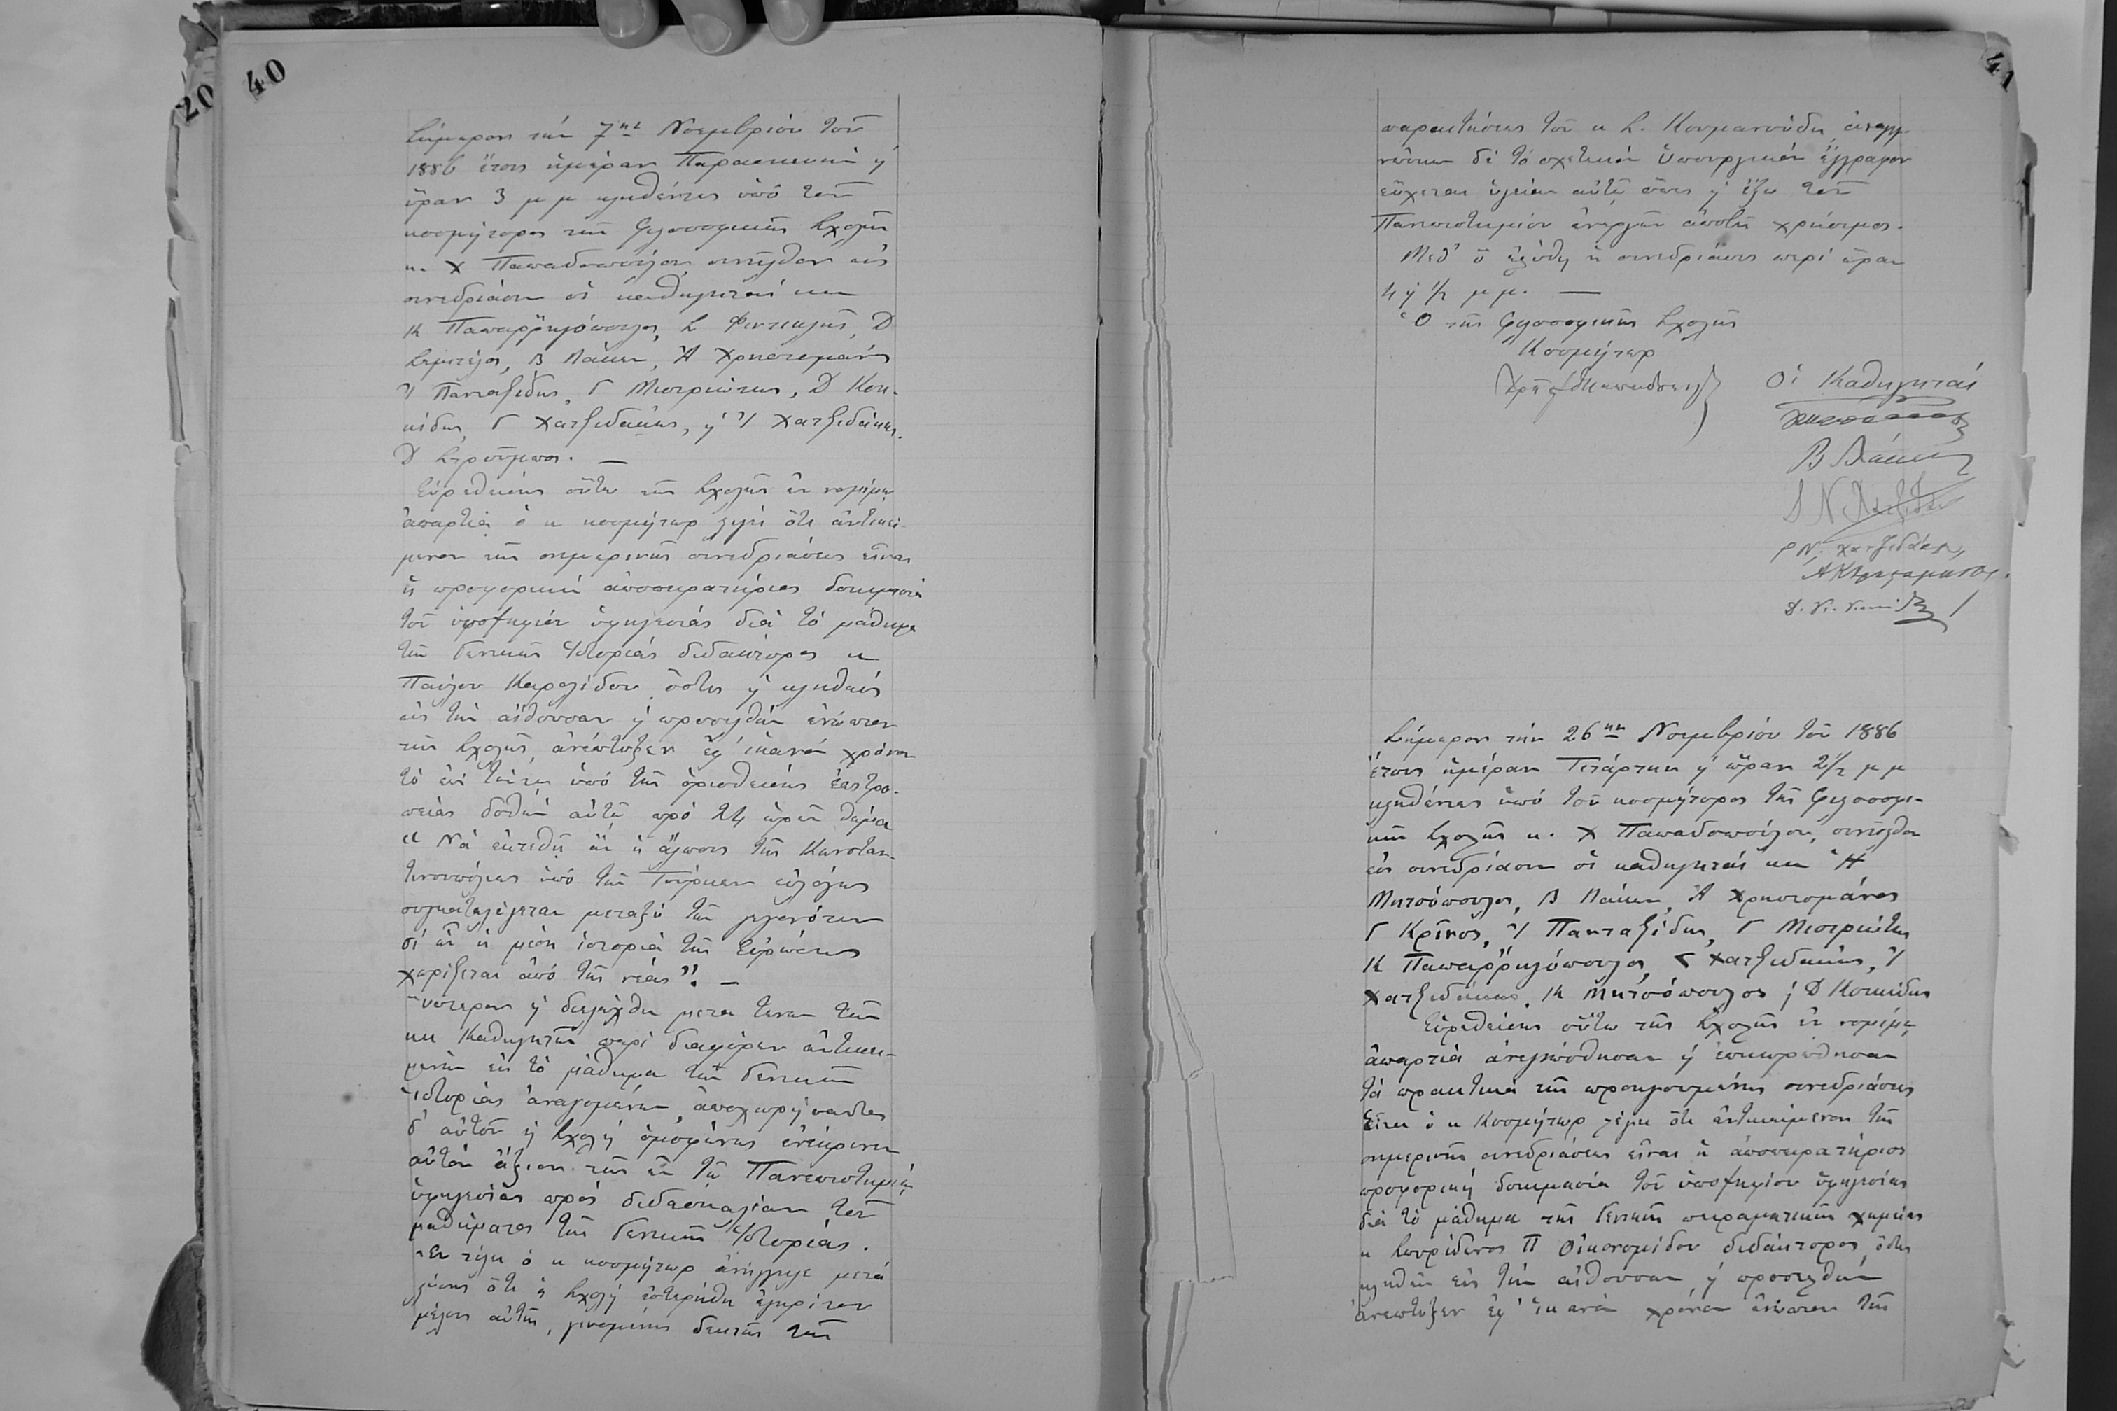 20
40
Σήμερον τὴν 7ην Νοεμβρίου τοῦ
1886 ἔτους ἡμέραν Παρασκευὴν ἡ
ὥραν 3 μ μ κληθέντες ὑπὸ τοῦ
κοσμήτορος τῆς Φιλοσοφικῆς Σχολῆς
κ. Χ Παπαδοπούλου συνῆλθον εἰς
συνεδρίασιν οἱ καθηγηταὶ κκ
Κ Παπαρρηγόπουλος, Σ Φιντικλῆς, Δ
Σεμιτέλος, Β Λάκων, Ἀ Χρηστομάνος
Ἰ Πανταζίδης, Γ Μιστριώτης, Δ Κοκ-
κίδης, Γ Χατζιδάκις, ἡ Ἰ Χατζιδάκις.
Δ Στροῦμπος. —
Εὑρεθείσης οὕτω τῆς Σχολῆς ἐν νομίμῳ
ἀπαρτίᾳ ὁ κ κοσμήτωρ λέγει ὅτι ἀντικεί-
μενον τῆς σημερινῆς συνεδριάσεως εἶναι
ἡ προφορικὴ ἀποπειρατήριος δοκιμασία
τοῦ ὑποψηφίου ὑφηγεσίας διὰ τὸ μάθημα
τῆς Γενικῆς Ἱστορίας διδάκτορος κ
Παύλου Καρολίδου, ὅστις ἡ κληθεὶς
εἰς τὴν αἴθουσαν ἡ προσελθὼν ἐνώπιον
τῆς Σχολῆς ἀνέπτυξεν ἐφ' ἱκανὸν χρόνον
τὸ ἐπὶ τούτῳ ὑπὸ τῆς ὁρισθείσης ἐπιτρο-
πείας δοθὲν αὐτῷ πρὸ 24 ὡρῶν θέμα
"Νὰ ἐκτεθῇ ἂν ἡ ἅλωσις τῆς Κωνσταν-
τινουπόλεως ὑπὸ τῶν Τούρκων εὐλόγως
συγκαταλέγεται μεταξὺ τῶν γεγονότων
δι' ὧν ἡ μέση ἱστορία τῆς Εὐρώπης
χωρίζεται ἀπὸ τῆς νέας". —
Ὕστερον ἡ διελέχθη μετά τινων τῶν
κκ Καθηγητῶν περὶ διαφόρων ἀντικει-
μένων εἰς τὸ μάθημα τῆς Γενικῆς
Ἱστορίας ἀναγομένων, ἀποχωρήσαντος
δ' αὐτοῦ ἡ Σχολὴ ὁμοφώνως ἐνέκρινεν
αὐτὸν ἄξιον τῆς ἐν τῷ Πανεπιστημίῳ
ὑφηγεσίας πρὸς διδασκαλίαν τοῦ
μαθήματος τῆς Γενικῆς Ἱστορίας.
Ἐν τέλει ὁ κ κοσμήτωρ ἀνήγγειλε μετὰ
λύπης ὅτι ἡ Σχολὴ ἐστερήθη ἐγκρίτου
μέλους αὐτῆς, γενομένης δεκτῆς τῆς
41
παραιτήσεως τοῦ κ Σ. Κουμανούδη ἀναγι-
νώσκων δὲ τὸ σχετικὸν ὑπουργικὸν ἔγγραφον
εὔχεται ὑγείαν αὐτῷ ὅπως ἡ ἔξω τοῦ
Πανεπιστημίου ἐνεργῶν ἀποβῇ χρήσιμος.
Μεθ' ὃ ἐλύθη ἡ συνεδρίασις περὶ ὥραν
4 ἡ 1/2 μ μ. —
Ὁ τῆς Φιλοσοφικῆς Σχολῆς
Κοσμήτωρ
Οἱ Καθηγηταὶ
Β Λάκων
Ι Ν Χατζιδάκις
Γ Ν. Χατζιδάκις
Α Κ Χρηστομάνος.
Δ. Κοκκίδης
Σήμερον τὴν 26ην Νοεμβρίου τοῦ 1886
ἔτους ἡμέραν Τετάρτην ἡ ὥραν 2 1/2 μ μ
κληθέντες ὑπὸ τοῦ κοσμήτορος τῆς Φιλοσοφι-
κῆς Σχολῆς κ. Χ Παπαδοπούλου, συνῆλθον
εἰς συνεδρίασιν οἱ καθηγηταὶ κκ Ἡ
Μητσόπουλος, Β Λάκων, Ἀ Χρηστομάνος
Γ Κρῖνος, Ἰ Πανταζίδης, Γ Μιστριώτης
Κ Παπαρρηγόπουλος, Γ Χατζιδάκις, Ἰ
Χατζιδάκις, Κ Μητσόπουλος ἡ Δ Κοκκίδης
Εὑρεθείσης οὕτω τῆς Σχολῆς ἐν νομίμῳ
ἀπαρτίᾳ ἀνεγνώσθησαν ἡ ἐπεκυρώθησαν
τὰ πρακτικὰ τῆς προηγουμένης συνεδριάσεως
Εἶτα ὁ κ Κοσμήτωρ λέγει ὅτι ἀντικείμενον τῆς
σημερινῆς συνεδριάσεως εἶναι ἡ ἀποπειρατήριος
προφορικὴ δοκιμασία τοῦ ὑποψηφίου ὑφηγεσίας
διὰ τὸ μάθημα τῆς Γενικῆς πειραματικῆς χημείας
κ Σπυρίδωνος Π Οἰκονομίδου διδάκτορος, ὅστις
κληθεὶς εἰς τὴν αἴθουσαν, ἡ προσελθὼν
ἀνέπτυξεν ἐφ' ἱκανὸν χρόνον ἐνώπιον τῆς